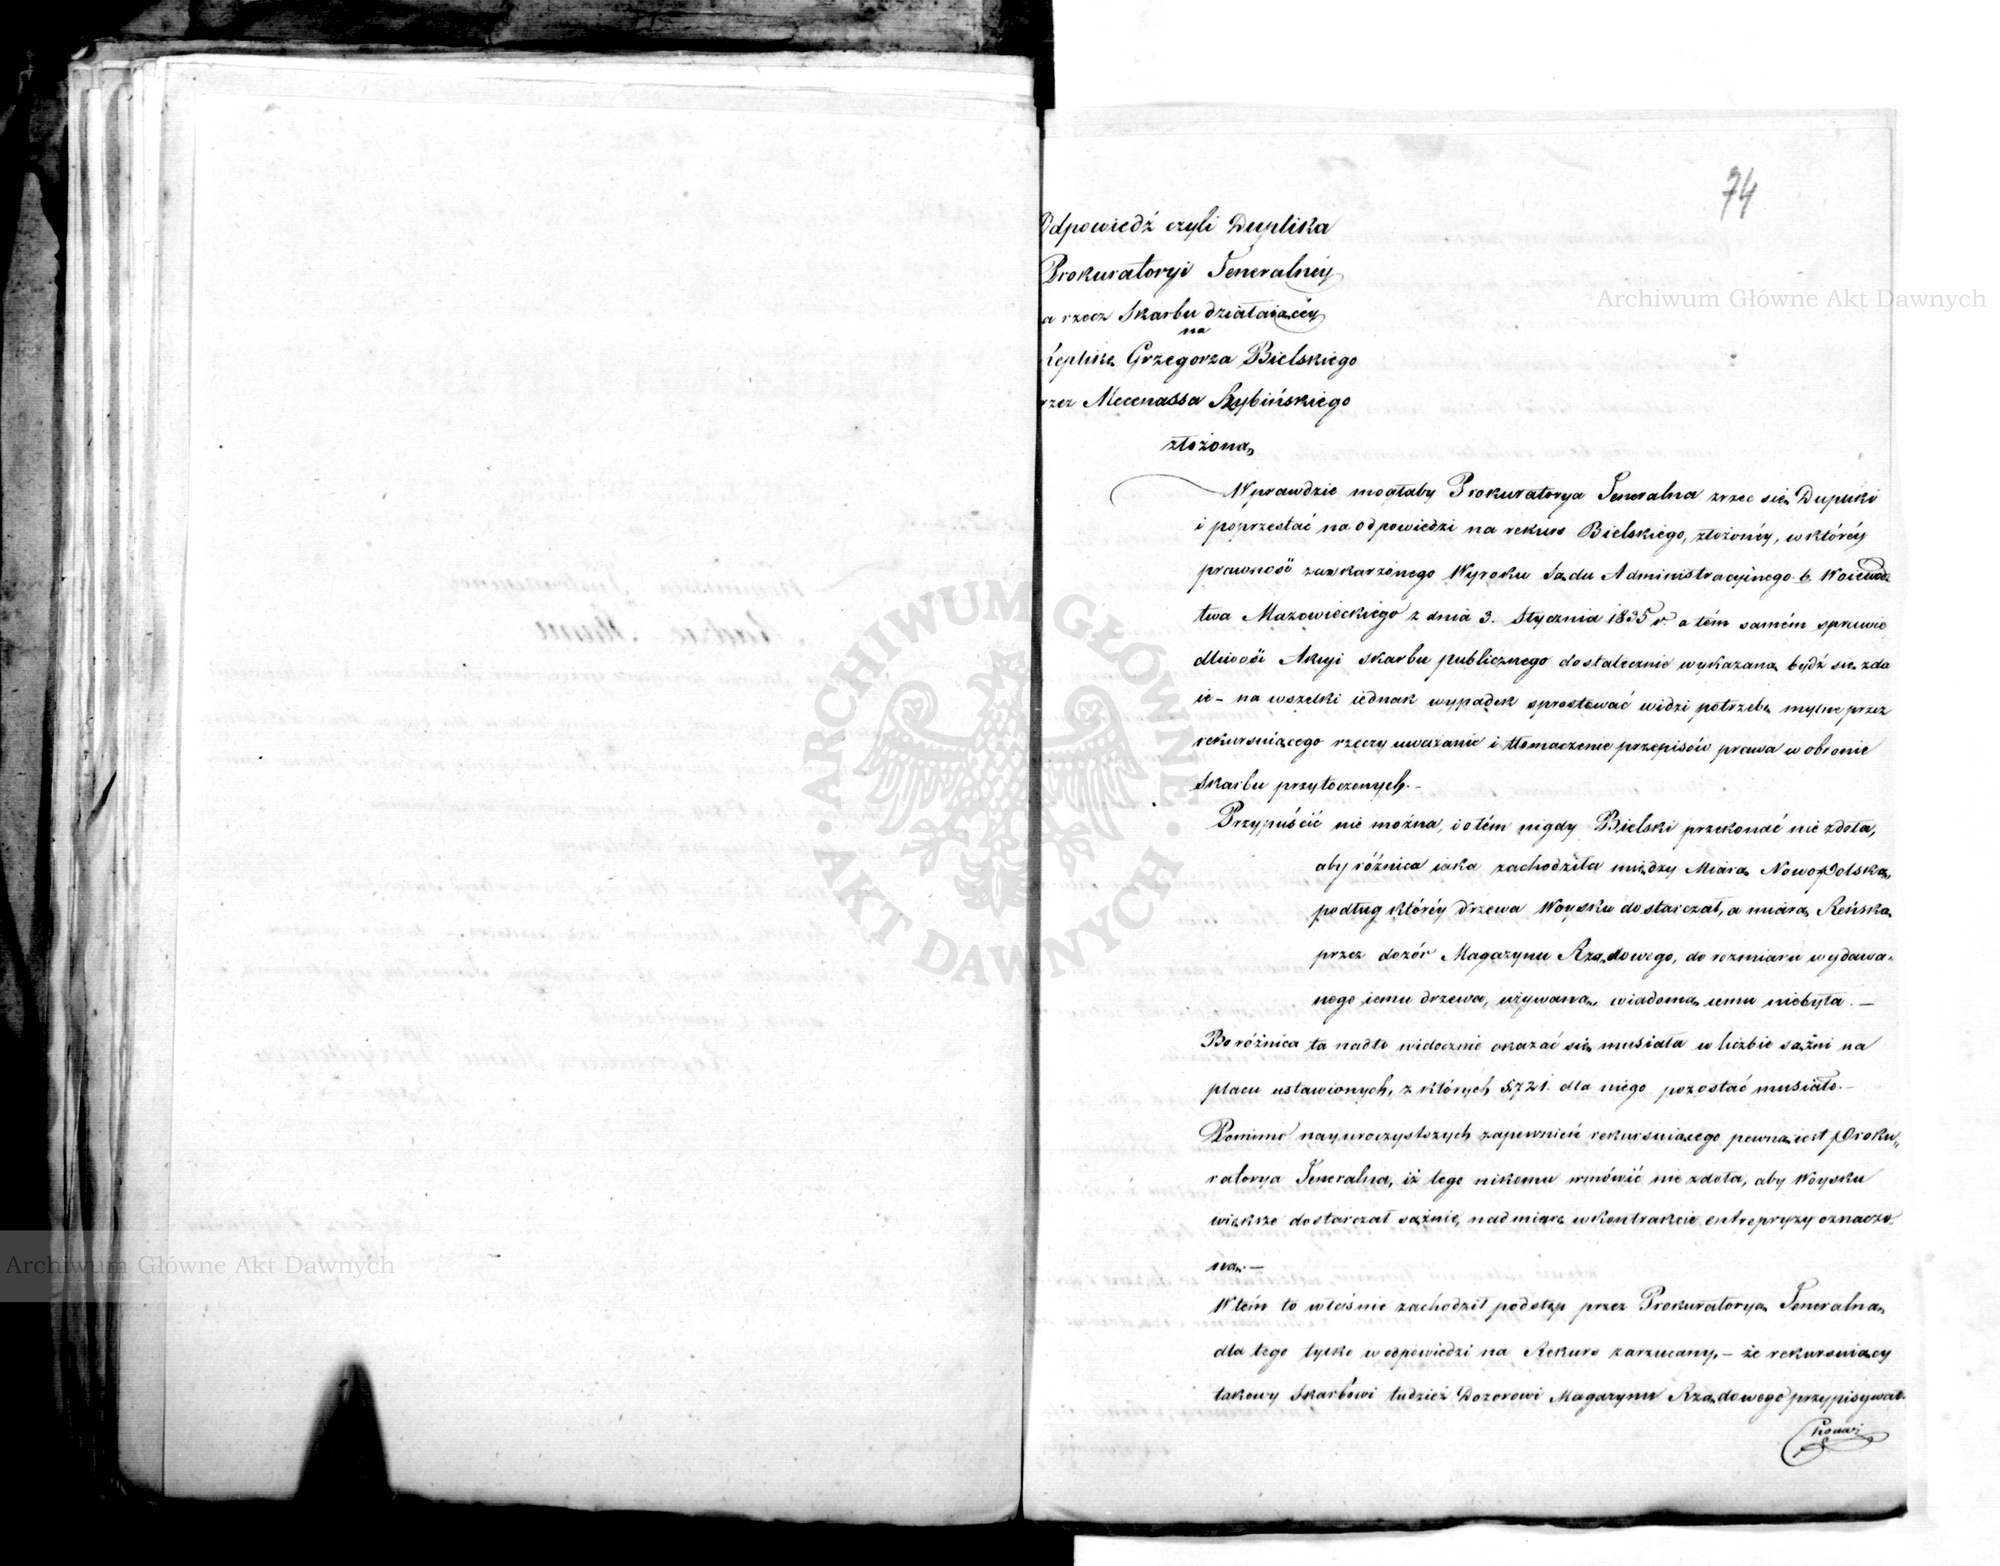 74
Odpowiedź czyli Duplika
Prokuratoryi Generalnéy
na rzecz Skarbu działaiącéy
na
Replikę Grzegorza Bielskiego
przez Mecenassa Szybińskiego
złożoną
Wprawdzie mogłaby Prokuratorya Generalna zrzec się Dupliki
i poprzestać na odpowiedzi na rekurs Bielskiego, złożonéy, w któréy
prawność zaskarzonego Wyroku Sądu Administracyinego b. Woiewódz
twa Mazowieckiego z dnia 3. Stycznia 1835 r. a tém samém sprawie
dliwość Akcyi skarbu publicznego dostatecznie wykazaną bydź się zda
ie – na wszelki iednak wypadek sprostować widzi potrzebę mylne przez
rekursuiącego rzeczy uważanie i tłomaczenie przepisów prawa w obronie
Skarbu przytoczonych. –
Przypuścić nie można, i o tém nigdy Bielski przekonać nie zdoła,
aby różnica iaka zachodziła między Miarą Nowo Polską,
podług któréy drzewa Woysku dostarczał, a miarą Reńską
przez dozór Magazynu Rządowego, do rozmiaru wydawa-
nego iemu drzewa, używaną, wiadomą iemu niebyła. —
Bo różnica ta nadto widocznie okazać się musiała w liczbie sążni na
placu ustawionych, z których 5721. dla niego pozostać musiało. –
Pomimo nayuroczystszych zapewnień rekursuiącego pewną iest Proku„
ratorya Generalna, iż tego nikomu wmówić nie zdoła, aby Woysku
większe dostarczał sążnie, nad miarę w kontrakcie entrepryzy oznaczo
ną. —
W tém to właśnie zachodził podstęp przez Prokuratoryą Generalną
dla tego tylko w odpowiedzi na Rekurs zarzucany, – że rekursuiący
takowy Skarbowi tudzież Dozorowi Magazynu Rządowego przypisywał.
Archiwum Główne Akt Dawnych
Archiwum Główne Akt Dawnych
ARCHIWUM GŁÓWNE · AKT DAWNYCH ·